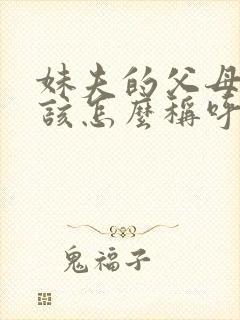 妹夫的父母
該怎麼稱呼
鬼福子